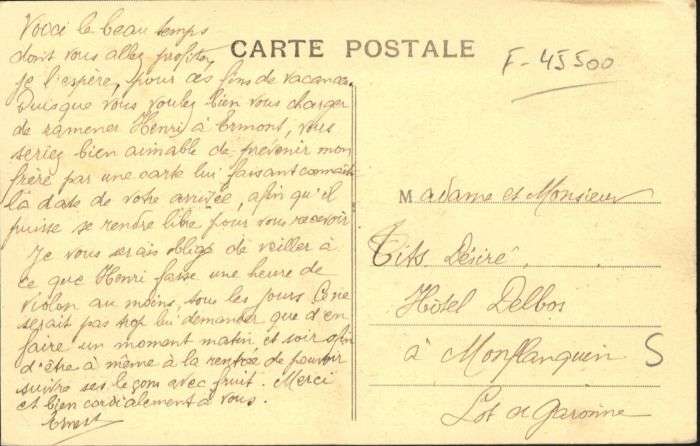 CARTE POSTALE
F-45500
Voici le beau temps
dont vous allez profiter,
je l'espère, pour ces fins de vacances.
Puisque vous voulez bien vous charger
de ramener Henri à Ermont, vous
seriez bien aimable de prévenir mon
frère par une carte lui faisant connaître
la date de votre arrivée, afin qu'il
puisse se rendre libre pour vous recevoir
Je vous serais obligé de veiller à
ce que Henri fasse une heure de
violon au moins, tous les jours. Ce ne
serait pas trop lui demander que d'en
faire un moment matin et soir afin
d'être à même à la rentrée de pouvoir
suivre ses leçons avec fruit. Merci
et bien cordialement à vous.
Ernest
Madame et Monsieur
Tits Désiré
Hôtel Delbos
à Monflanquin
Lot et Garonne
S